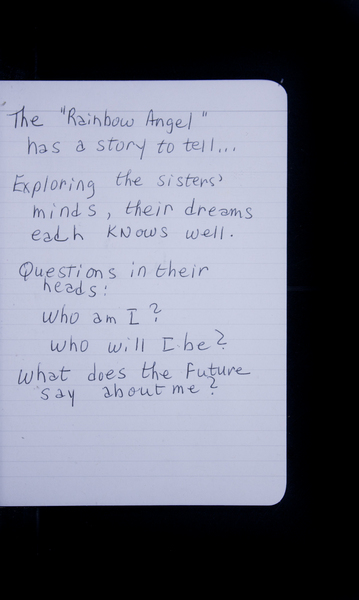 The "Rainbow Angel"
has a story to tell...
Exploring the sisters'
minds, their dreams
each knows well.
Questions in their
heads:
who am I?
who will I be?
what does the future
say about me?